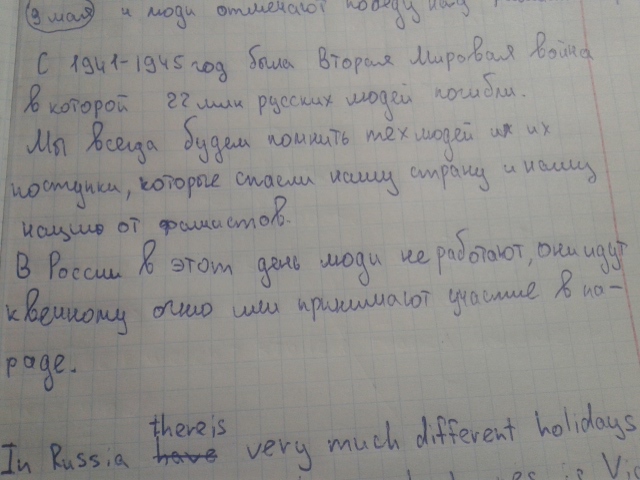 9 мая и люди отмечают победу над
С 1941-1945 год была Вторая Мировая война
в которой 22 млн русских людей погибли.
Мы всегда будем помнить тех людей их
поступки, которые спасли нашу страну и нашу
нацию от фашистов.
В России в этот день люди не работают, они идут
к вечному огню или принимают участие в па-
раде.
there is
In Russia have very much different holidays
is Vic